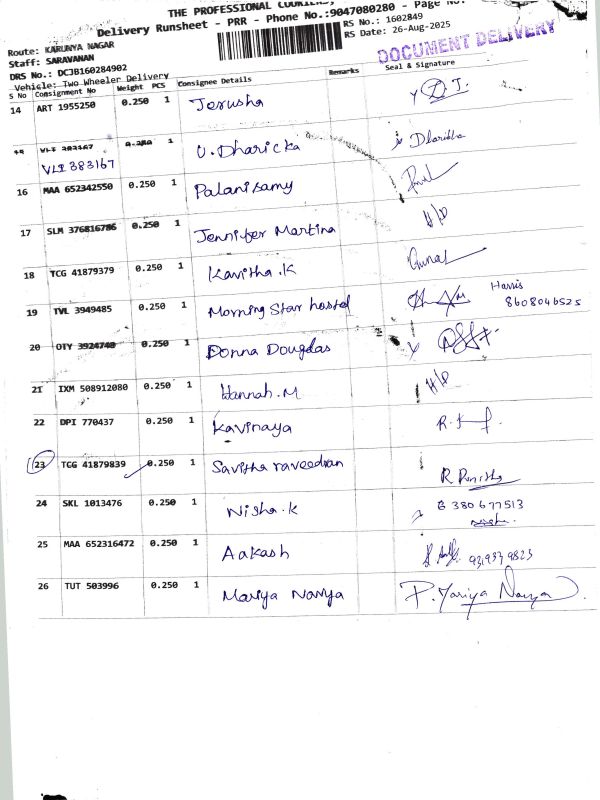 THE PROFESSIONAL COURIERS,
Delivery Runsheet - PRR - Phone No.:9047080280 - Page No.
Route: KARUNYA NAGAR
RS No.: 1602849
Staff: SARAVANAN
RS Date: 26-Aug-2025
DRS No.: DCJB160284902
DOCUMENT DELIVERY
Vehicle: Two Wheeler Delivery
S No Consignment No Weight PCS Consignee Details Remarks Seal & Signature
14 ART 1955250 0.250 1 Jerusha
15 VLI 383167 0.250 1 U.Dharicka Dharikha
VLI 383167
16 MAA 652342550 0.250 1 Palanisamy
17 SLM 376816786 0.250 1 Jennifer Martina H/D
18 TCG 41879379 0.250 1 Kavitha.K
19 TVL 3949485 0.250 1 Morning Star hostel Harris
8608046525
20 OTY 3924748 0.250 1 Donna Dougdas
21 IXM 508912080 0.250 1 Hannah.M H/D
22 DPI 770437 0.250 1 Kavinaya
23 TCG 41879839 0.250 1 Savitha raveedran R Punitha
24 SKL 1013476 0.250 1 Nisha.K 6380677513
nisha.
25 MAA 652316472 0.250 1 Aakash
26 TUT 503996 0.250 1 Mariya Nariya P.Mariya Nariya